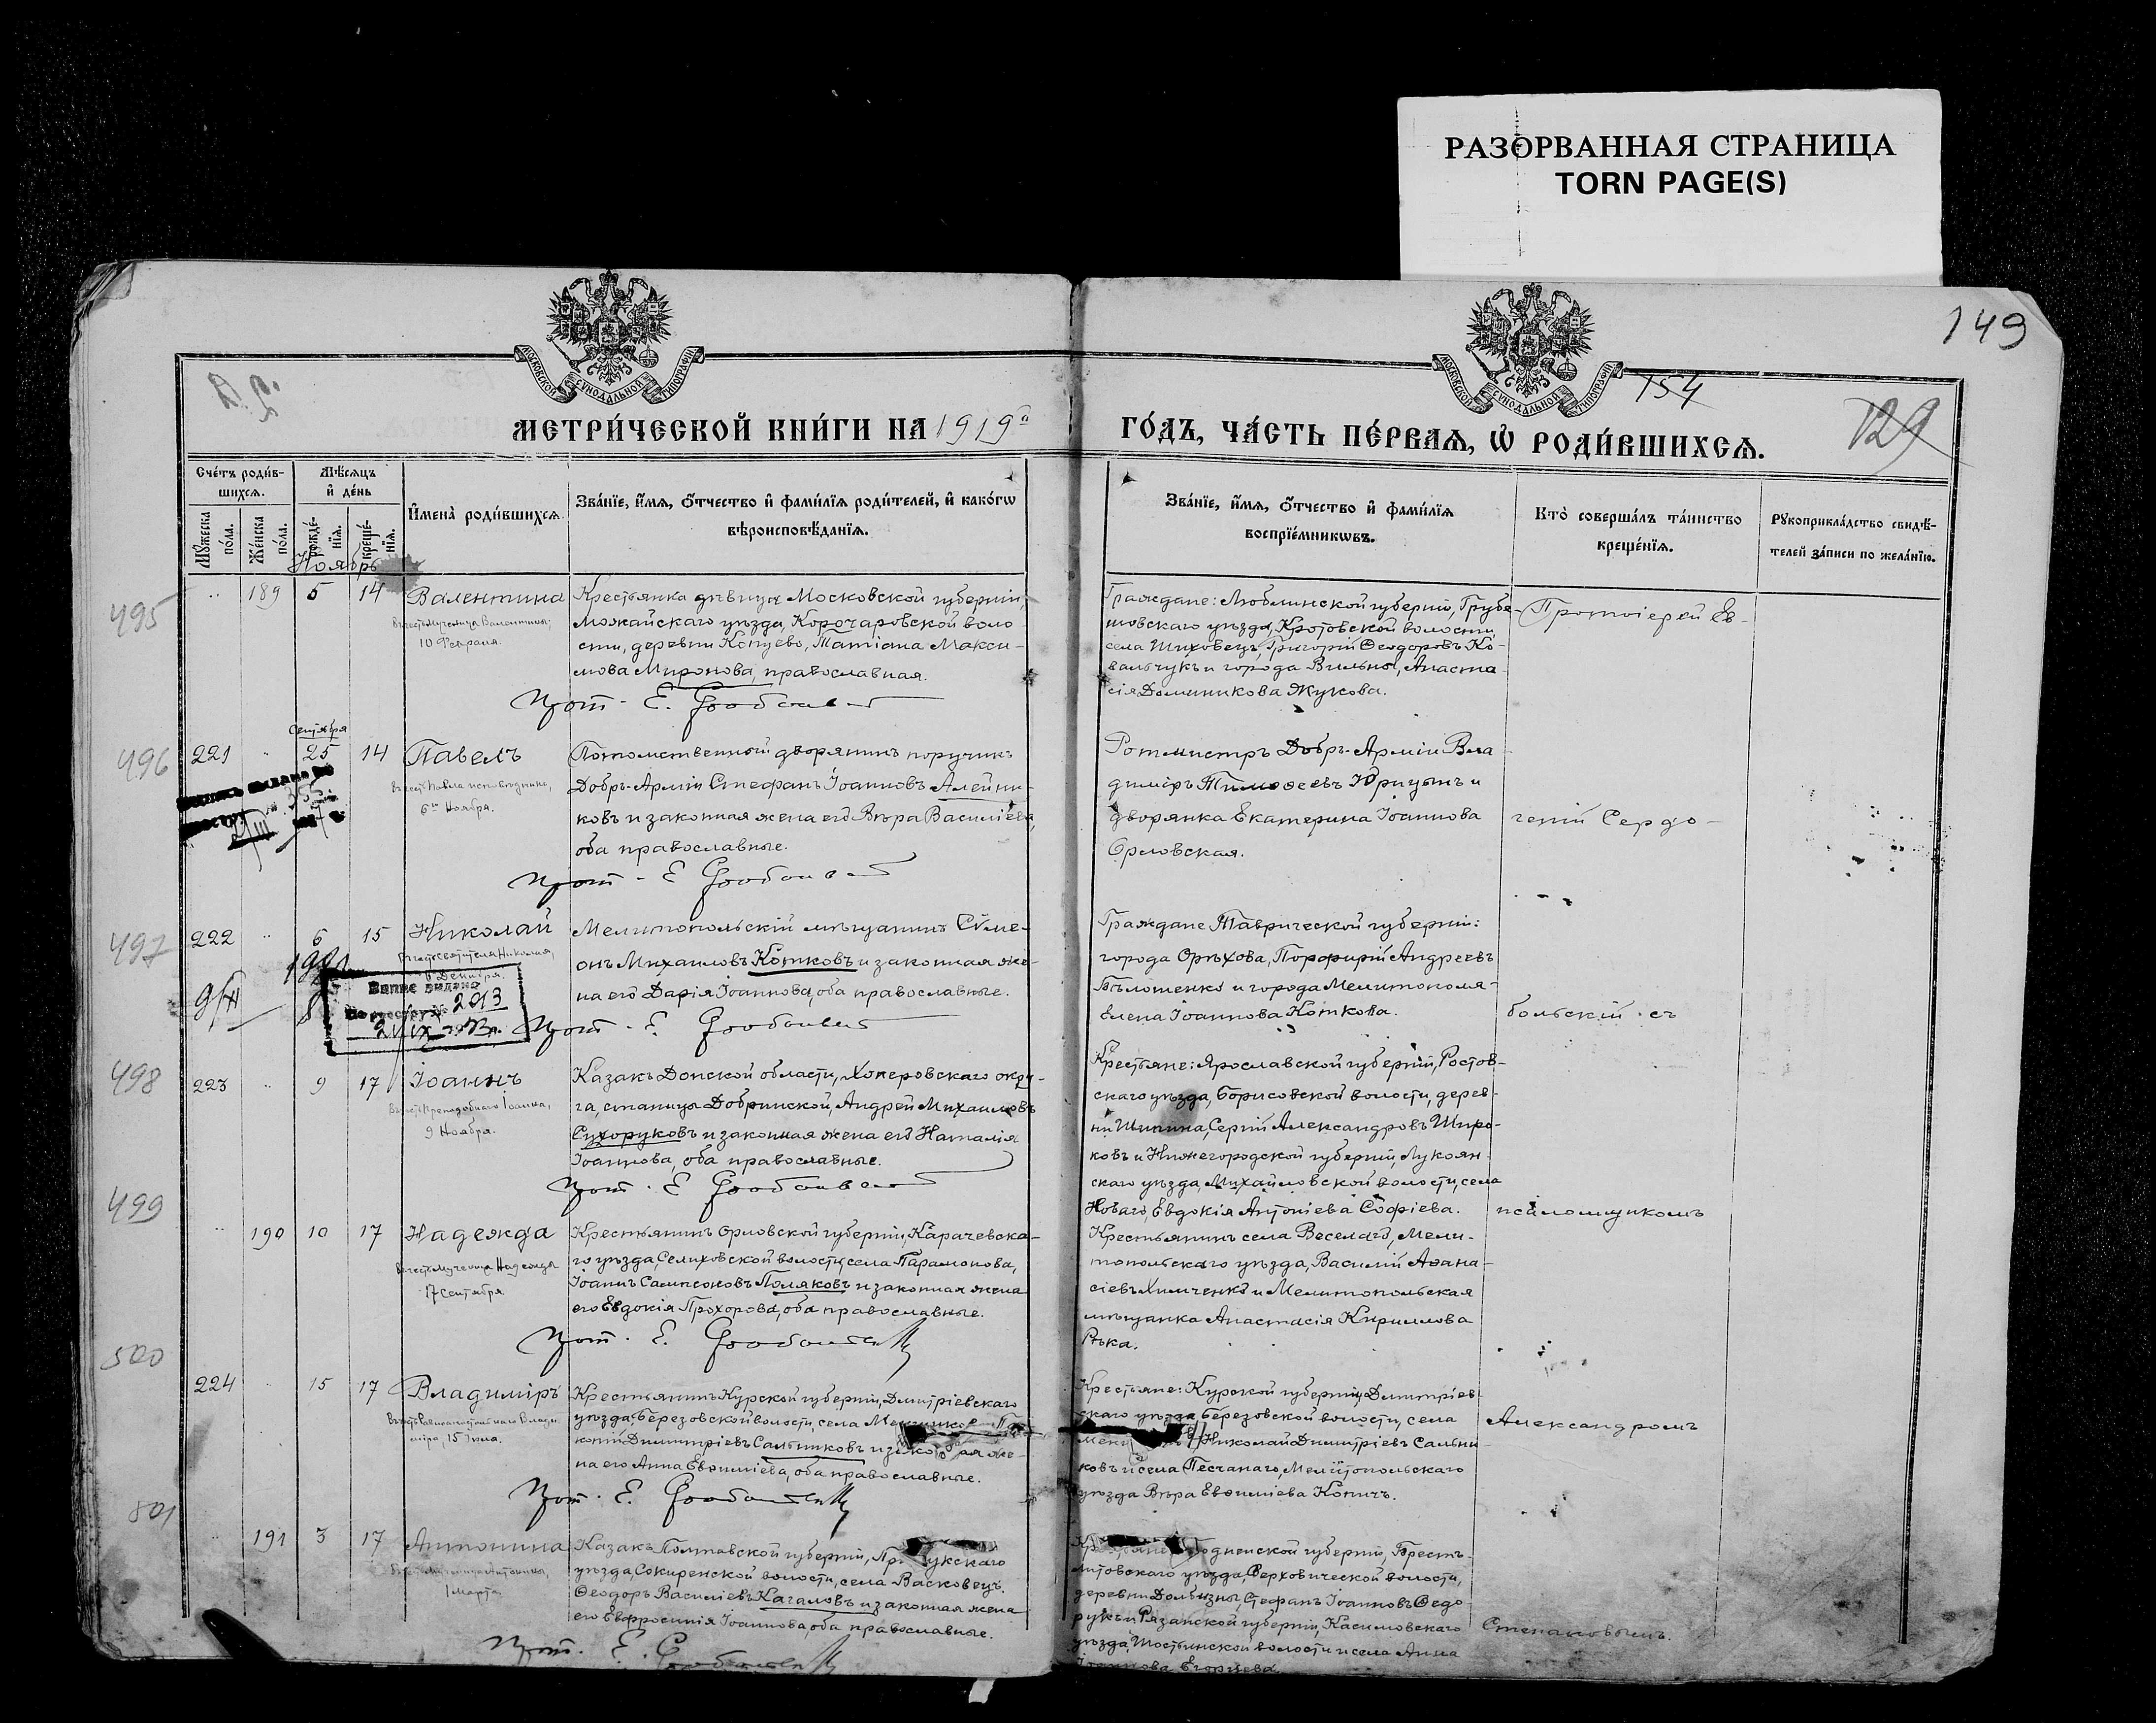 РАЗОРВАННАЯ СТРАНИЦА
TORN PAGE(S)
149
154
129
МОСКОВСКОЙ СѴНОДАЛЬНОЙ ТИПОГРАФІИ
МОСКОВСКОЙ СѴНОДАЛЬНОЙ ТИПОГРАФІИ
МЕТРИ́ЧЕСКОЙ КНИ́ГИ НА 1919й
ГО́ДЪ, ЧА́СТЬ ПЕ́РВАѦ, Ѡ҆ РОДИ́ВШИХСѦ.
Сче́тъ роди́в-
шихсѧ.
Мꙋ́жеска по́ла.
Же́нска по́ла.
Мѣ́сѧцъ
и҆ де́нь
рожде́-
нїѧ.
креще́-
нїѧ.
Ноябрь
И҆мена̀ роди́вшихсѧ.
Зва́нїе, и҆́мѧ, ѻ҆́тчество и҆ фами́лїѧ роди́телей, и҆ како́гѡ
вѣроисповѣ́данїѧ.
Зва́нїе, и҆́мѧ, ѻ҆́тчество и҆ фами́лїѧ
воспрїе́мникѡвъ.
Кто̀ соверша́лъ та́инство
креще́нїѧ.
Рꙋкоприкла́дство свидѣ́-
телей за́писи по жела́нїю.
495
189 5 14 Валентина
Въ честь мученицы Валентины,
10 Февраля.
Крестьянка дѣвица Московской губерніи,
Можайскаго уѣзда, Корочаровской воло-
сти, деревни Копцево, Татіана Макси-
мова Миронова, православная.
Прот. Е.
Граждане: Люблинской губерніи, Грубе-
шовскаго уѣзда, Кротовской волости,
села Шиховецъ, Григорій Ѳеодоровъ Ко-
вальчукъ и города Вильны, Анаста-
сія Доминикова Жукова.
Протоіерей Ев-
496
221 Сентября 25 14 Павелъ
Въ честь Павла исповѣдника,
6го Ноября.
Потомственный дворянинъ поручикъ
Добр. Арміи Стефанъ Іоанновъ Алейни-
ковъ и законная жена его Вѣра Василіева,
оба православные.
Прот. Е.
Ротмистръ Добр. Арміи Вла-
диміръ Тимоѳеевъ Юрицынъ и
дворянка Екатерина Іоаннова
Орловская.
геній Сердо-
497
222 6 15 Николай
Въ честь святителя Николая,
6 Декабря.
Выпис выдана
По реестру № 2013
Мелитопольскій мѣщанинъ Симе-
онъ Михаиловъ Котковъ и законная же-
на его Дарія Іоаннова, оба православные.
Прот. Е.
Граждане Таврической губерніи:
города Орѣхова, Порфирій Андреевъ
Бѣлошенко и города Мелитополя-
Елена Іоаннова Коткова.
больскій съ
498
223 9 17 Іоаннъ
Въ честь Преподобнаго Іоанна,
9 Ноября.
Казакъ Донской области, Хоперовскаго окру-
га, станицы Добринской, Андрей Михаиловъ
Сухоруковъ и законная жена его Наталія
Іоаннова, оба православные.
Прот. Е.
Крестьяне: Ярославской губерніи, Ростов-
скаго уѣзда, Борисовской волости, дерев-
ни Шипина, Сергій Александровъ Широ-
ковъ и Нижегородской губерніи, Лукоян-
скаго уѣзда, Михайловской волости, села
Новаго, Евдокія Антоніева Софіева.
псаломщикомъ
499
190 10 17 Надежда
Въ честь мученицы Надежды
17 Сентября.
Крестьянинъ Орловской губерніи, Карачевска-
го уѣзда, Селиховской волости, села Парамонова,
Іоаннъ Сампсоновъ Поляковъ и законная жена
его Евдокія Прохорова, оба православные.
Прот. Е.
Крестьянинъ села Веселаго, Мели-
топольскаго уѣзда, Василій Аѳана-
сіевъ Химченко и Мелитопольская
мѣщанка Анастасія Кириллова
Рѣка.
500
224 15 17 Владиміръ
Въ честь Равноапостольнаго Влади-
міра, 15 Іюля.
Крестьянинъ Курской губерніи, Дмитріевскаго
уѣзда, Березовской волости, села
Димитріевъ Сальниковъ и законная же-
на его Анна Евѳиміева, оба православные.
Прот. Е.
Крестьяне: Курской губерніи, Дмитріев-
скаго уѣзда Березовской волости, села
Николай Димитріевъ Сальни-
ковъ и села Песчанаго, Мелитопольскаго
уѣзда Вѣра Евѳиміева Копичъ.
Александромъ
501
191 3 17 Антонина
Въ честь мученицы Антонины,
1 Марта.
Казакъ Полтавской губерніи, Прилукскаго
уѣзда, Сокиренской волости, села Васковецъ.
Ѳеодоръ Василіевъ Кагаловъ и законная жена
его Евфросинія Іоаннова, оба православные.
Прот. Е.
Гродненской губерніи, Брестъ-
литовскаго уѣзда, Верховической волости,
деревни Долбизны, Стефанъ Іоанновъ Ѳедо-
рукъ и Рязанской губерніи, Касимовскаго
уѣзда, Шостьинской волости и села Анна
Іоаннова Егорцева.
Степановымъ.